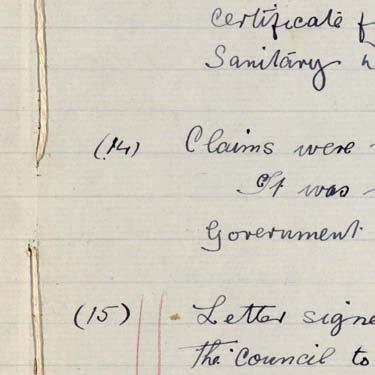 Certificate
Sanitary
(14) Claims were
It was
Government
(15) Letter signe
the Council to